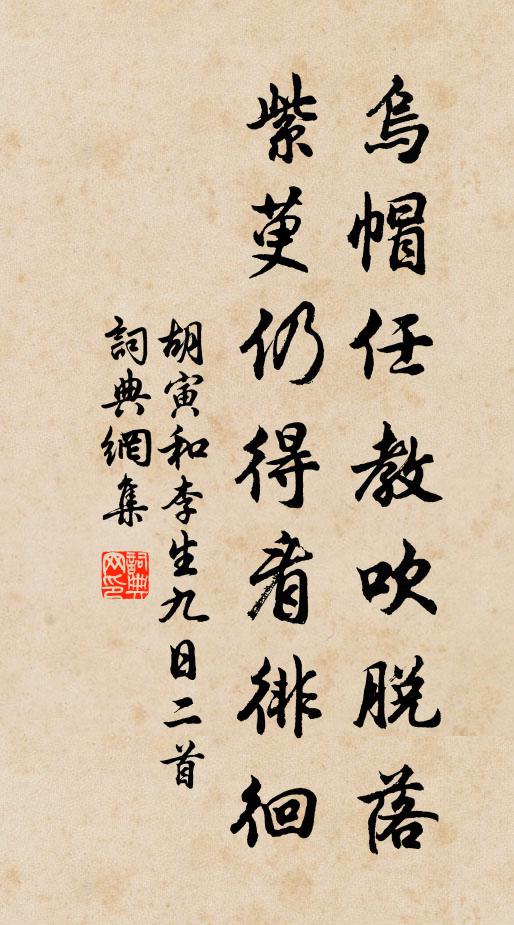 烏帽任教吹脫落
紫萸仍得看徘徊
胡寅和李生九日二首
詞典網集
詞典网印